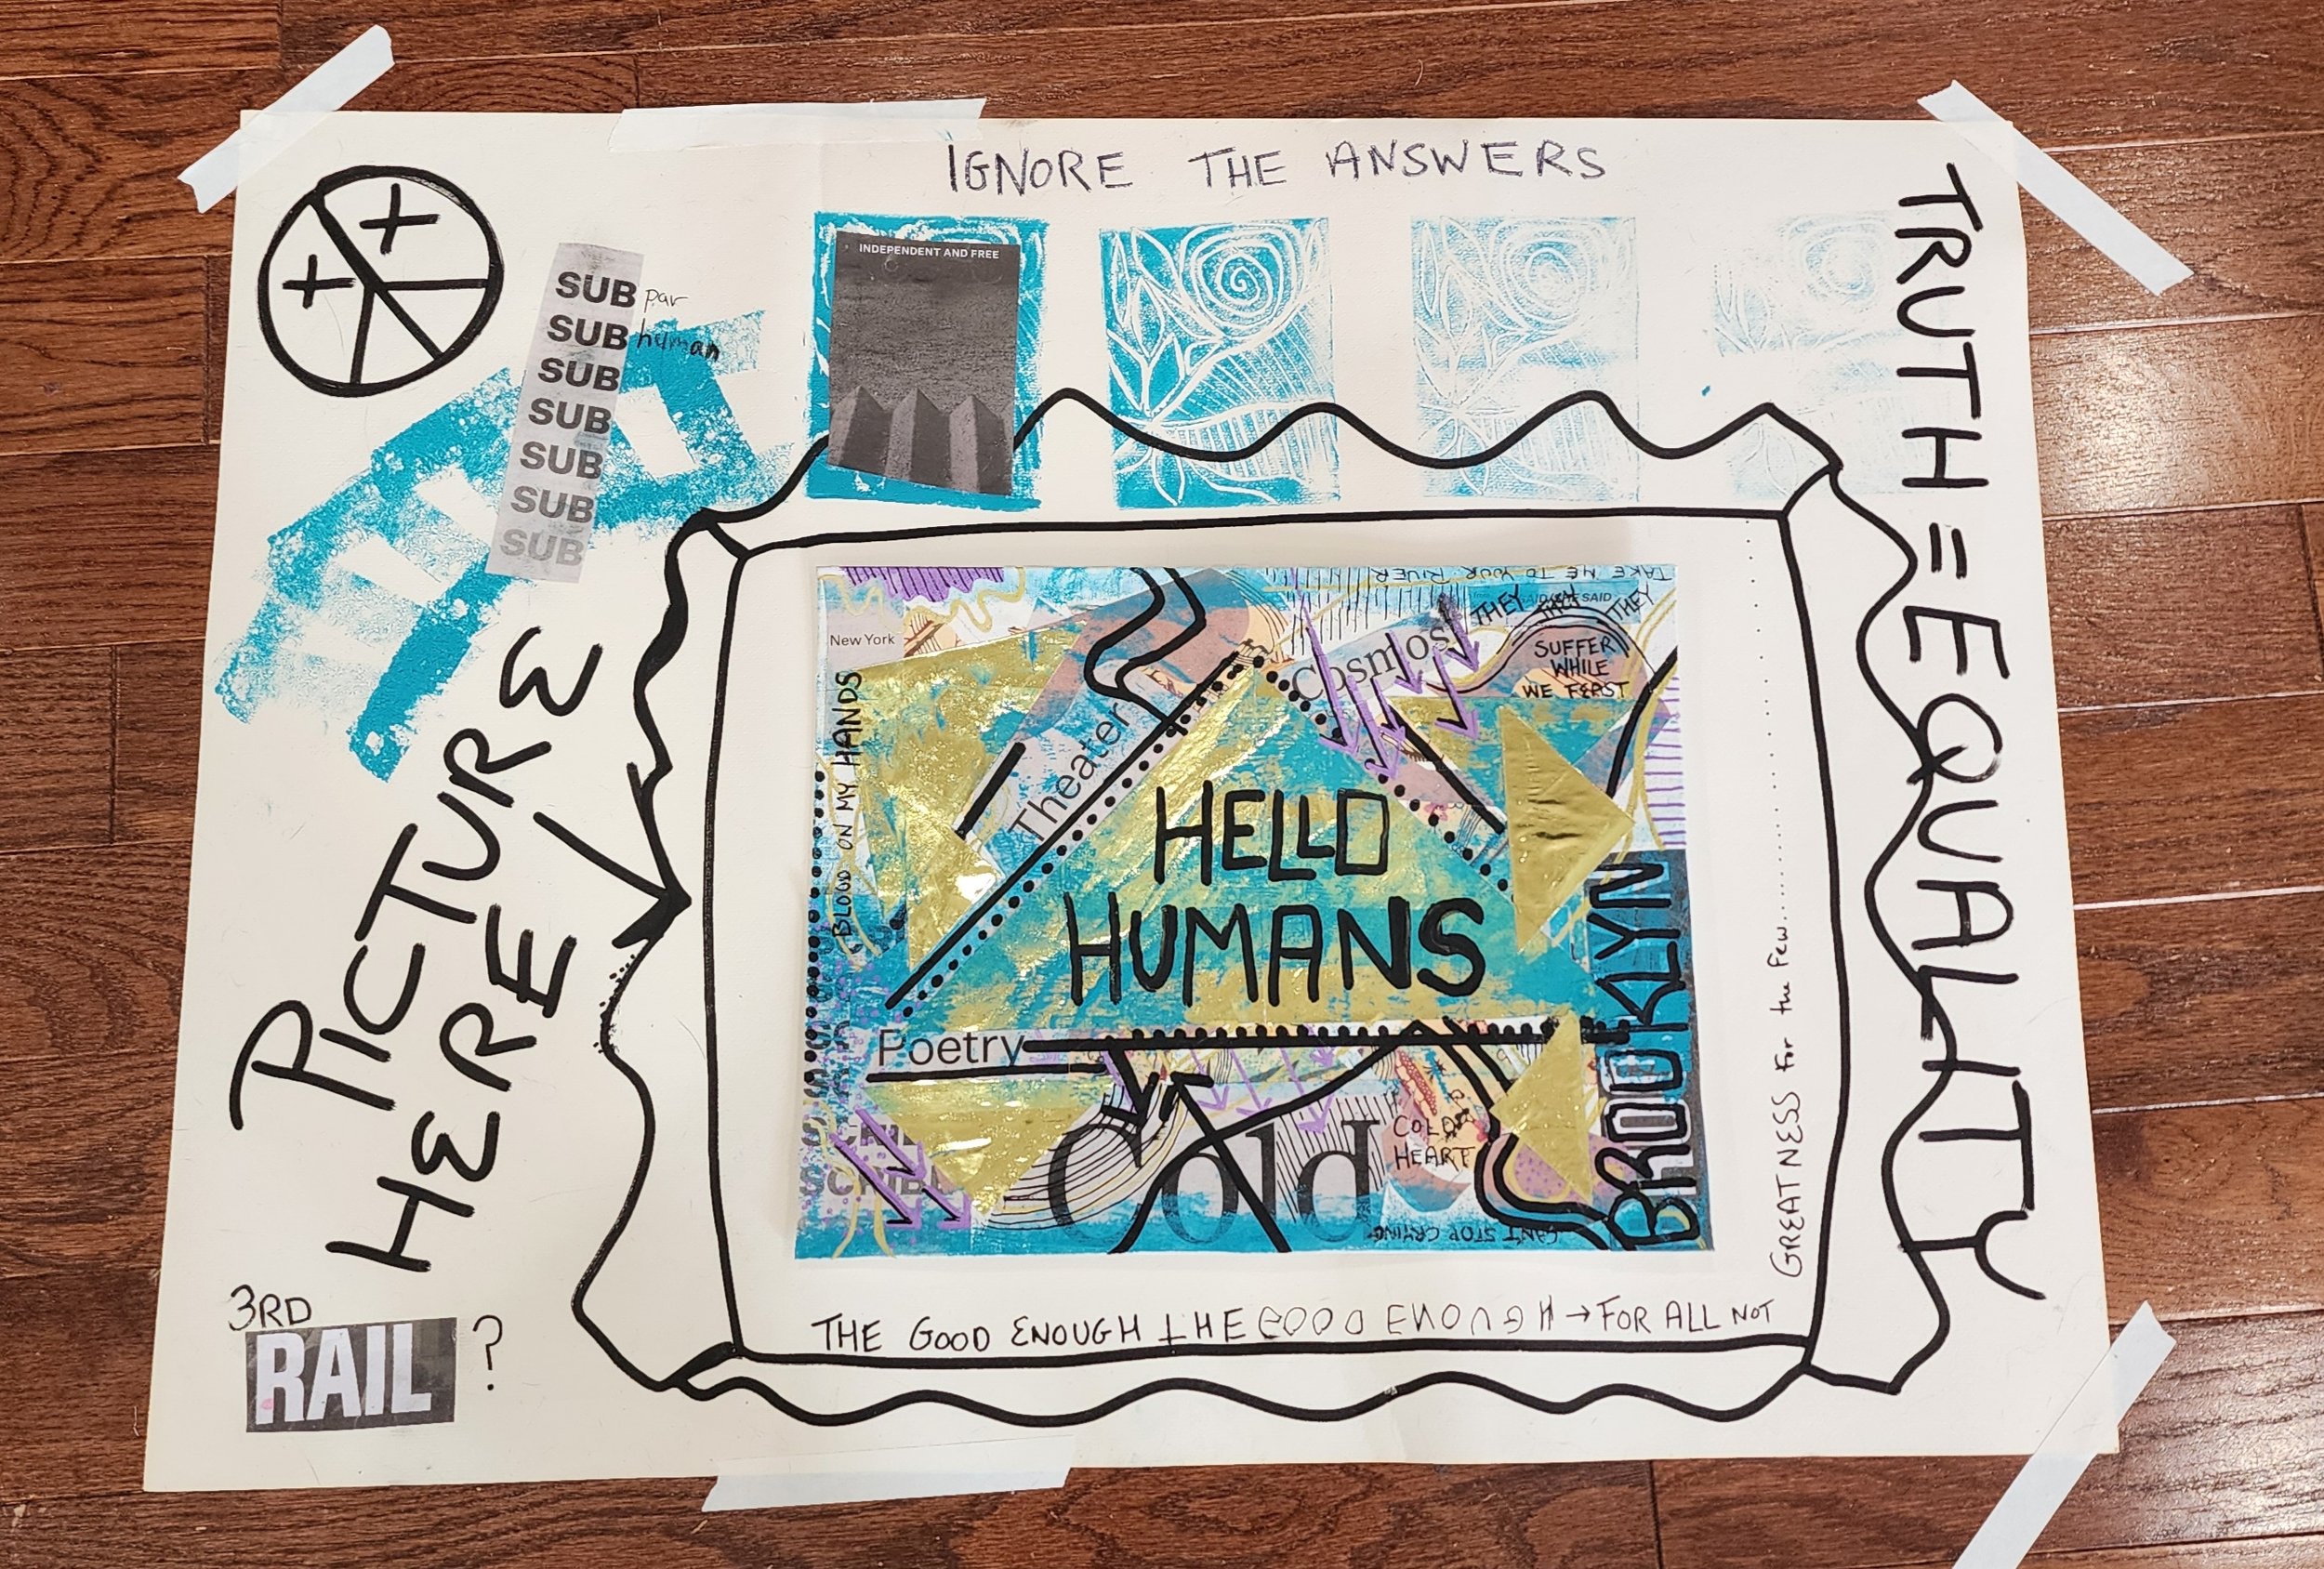 IGNORE THE ANSWERS
INDEPENDENT AND FREE
SUB par
SUB human
SUB
SUB
SUB
SUB
SUB
TRUTH = EQUALITY
PICTURE
HERE
3RD
RAIL ?
TAKE ME TO YOUR RIVER
THEY THEY THEY
SAID
SUFFER
WHILE
WE FEAST
New York
Cosmos
Theater
BLOOD ON MY HANDS
HELLO
HUMANS
BROOKLYN
Poetry
Cold
COLD
HEART
SCRIBE
CAN'T STOP CRYING
THE GOOD ENOUGH THE GOOD ENOUGH → FOR ALL NOT
GREATNESS For the Few..........